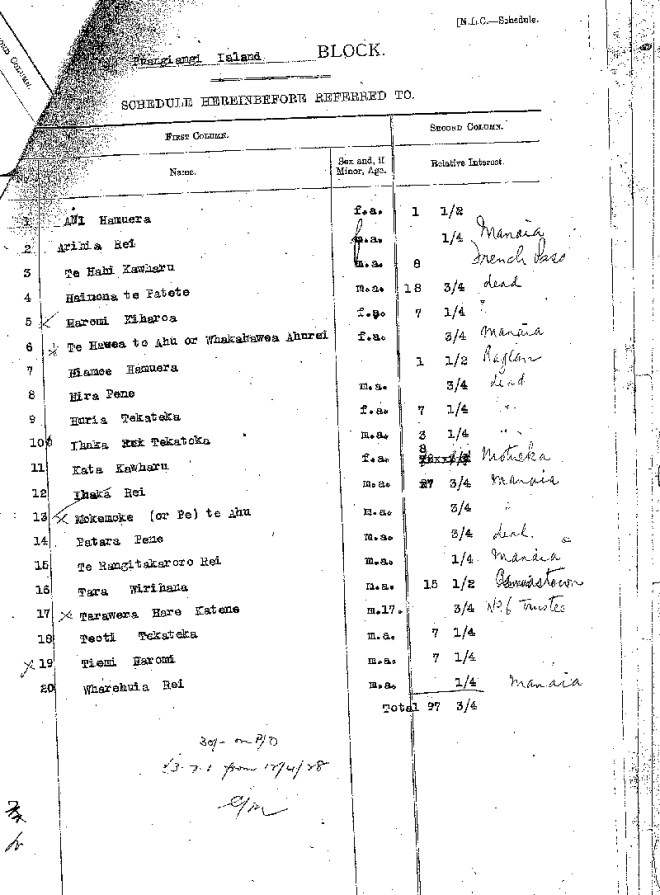 [N.L.C.—Schedule.
OND COLUMN.
Rangiangi Island BLOCK.
SCHEDULE HEREINBEFORE REFERRED TO.
FIRST COLUMN. SECOND COLUMN.
No. Name. Sex and, if Minor, Age. Relative Interest.
1 Ani Hamuera f.a. 1 1/2
2 Arihia Rei f.a. 1/4 Manaia
3 Te Hahi Kawharu m.a. 8 French Pass
4 Haimona te Patete m.a. 18 3/4 dead
5 x Haromi Kiharoa f.a. 7 1/4 "
6 x Te Hawea te Ahu or Whakahawea Ahurei f.a. 3/4 Manaia
7 Hiamoe Hamuera 1 1/2 Raglan
8 Hira Pene m.a. 3/4 dead
9 Huria Tekateka f.a. 7 1/4 "
10 Ihaka Tekateka m.a. 3 1/4 "
11 Kata Kawharu f.a. 8 Motueka
12 Ihaka Rei m.a. 3/4 Manaia
13 x Mokemoke (or Pe) te Ahu m.a. 3/4 "
14 Patara Pene m.a. 3/4 dead.
15 Te Rangitakaroro Rei m.a. 1/4 Manaia
16 Tara Wirihana m.a. 15 1/2
17 x Tarawera Hare Katene m.17. 3/4 No 6 trustee
18 Teoti Tekateka m.a. 7 1/4
x 19 Tiemi Haromi m.a. 7 1/4
20 Wharehuia Rei m.a. 1/4 Manaia
Total 97 3/4
30/- on P/O
£3.7.1 from 12/4/28